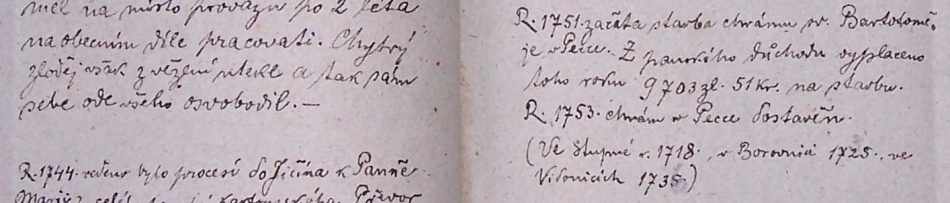 měl na místo provazu po 2 léta
na obecním díle pracovati. Chytrý
zloděj však z vězení utekl a tak sám
sebe ode všeho osvobodil. —
R. 1744. vedeno bylo procesí do Jičína k Panně
Marii z celé
R. 1751. začata stavba chrámu sv. Bartoloměje
je v Pecce. Z panského důchodu vyplaceno
toho roku 9703 zl. 51 kr. na stavbu.
R. 1753. chrám v Pecce dostavěn.
(Ve Stupné r. 1718., v Borovnici 1725., ve
Vidonicích 1735.)